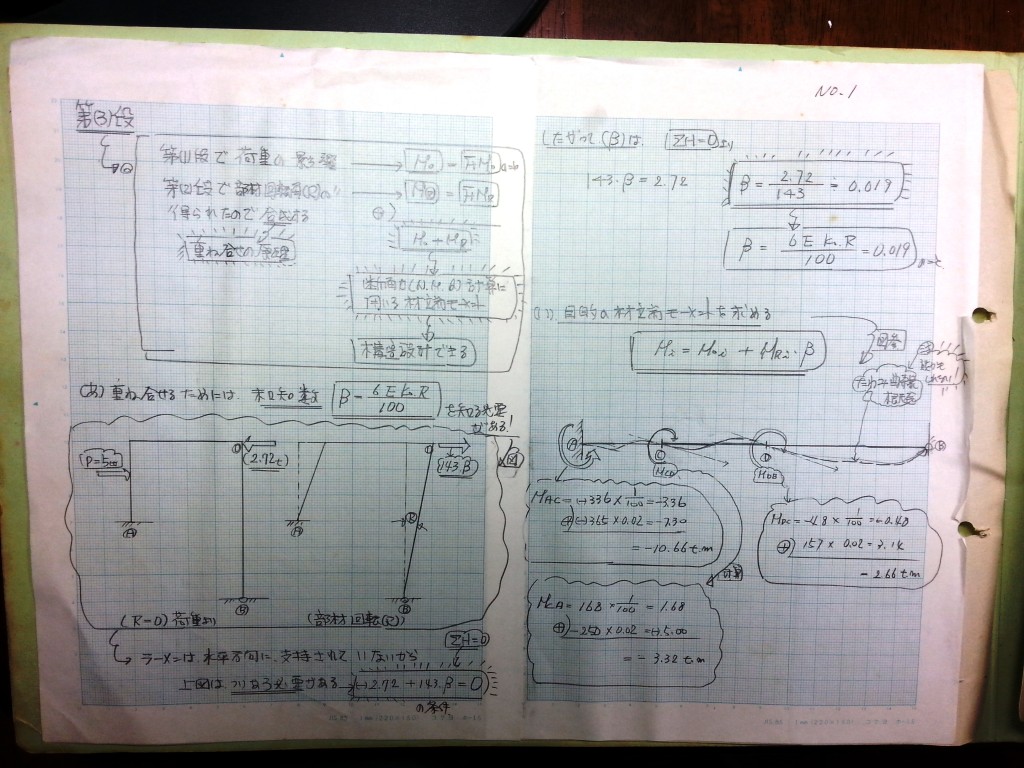 NO-1
第(3)段
第(1)段で 荷重の 影響 → M₀ = FM₀
第(2)段で 部材回転角(R)の〃 = FMR
得られたので 合成する
⊕)
M₀ + MR
重ね合せの原理
断面力(N.M.Q)を計算に
用いる 材端モーメント
構造設計できる
(あ) 重ね合せるためには. 未知数 β = 6EK₀R/100 を知る必要がある!
P=5t
2.72t
143.β
Ⓐ
Ⓑ
Ⓐ
Ⓡ
Ⓑ
(R=0) 荷重より
(部材回転(R))
ΣH=0
ラーメンは、水平方向に、支持されていないから
上図は つりあう必要がある (-)2.72 + 143.β = 0
の条件
したがって (β)は. ΣH=0 より
143.β = 2.72
β = 2.72/143 ≒ 0.019
β = 6EK₀R/100 = 0.019
(い) 目的の材端モーメントを求める
Mi = M₀i + MRi・β
Ⓐ
Ⓒ
Ⓓ
Ⓑ
MCD
MDB
MAC = (-)336 × 1/100 = -3.36
⊕) (-)365 × 0.02 = -7.30
= -10.66 t.m
MDC = -48 × 1/100 = -0.48
⊕) 157 × 0.02 = 3.14
- 2.66 t.m
MCA = 168 × 1/100 = 1.68
⊕) -250 × 0.02 = (-)5.00
= - 3.32 t.m